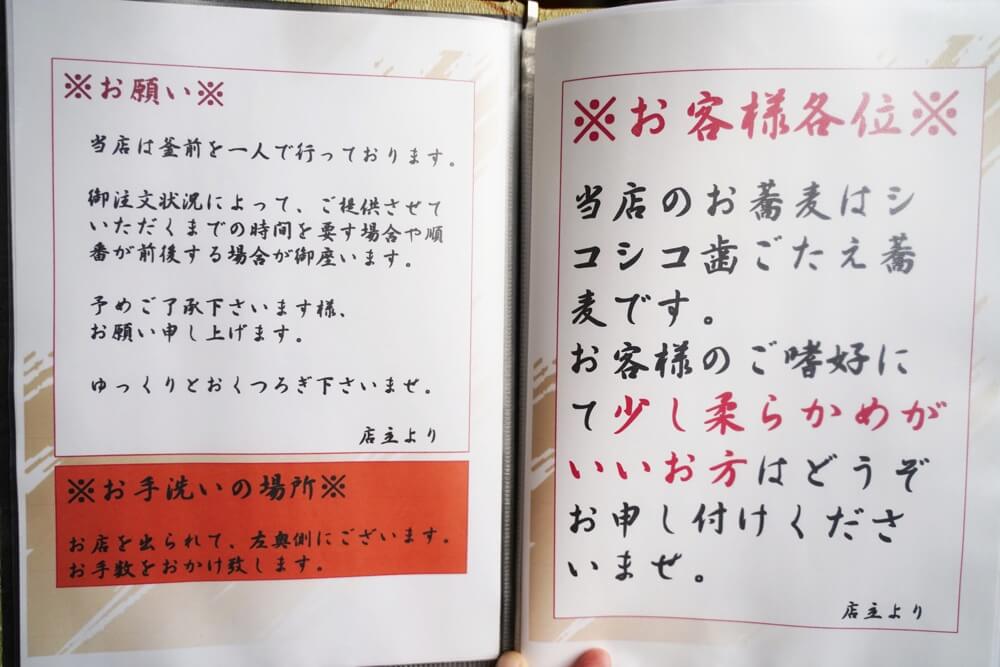 ※お願い※
当店は釜前を一人で行っております。
御注文状況によって、ご提供させて
いただくまでの時間を要す場合や順
番が前後する場合が御座います。
予めご了承下さいます様、
お願い申し上げます。
ゆっくりとおくつろぎ下さいませ。
店主より
※お手洗いの場所※
お店を出られて、左奥側にございます。
お手数をおかけ致します。
※お客様各位※
当店のお蕎麦はシ
コシコ歯ごたえ蕎
麦です。
お客様のご嗜好に
て少し柔らかめが
いいお方はどうぞ
お申し付けくださ
いませ。
店主より